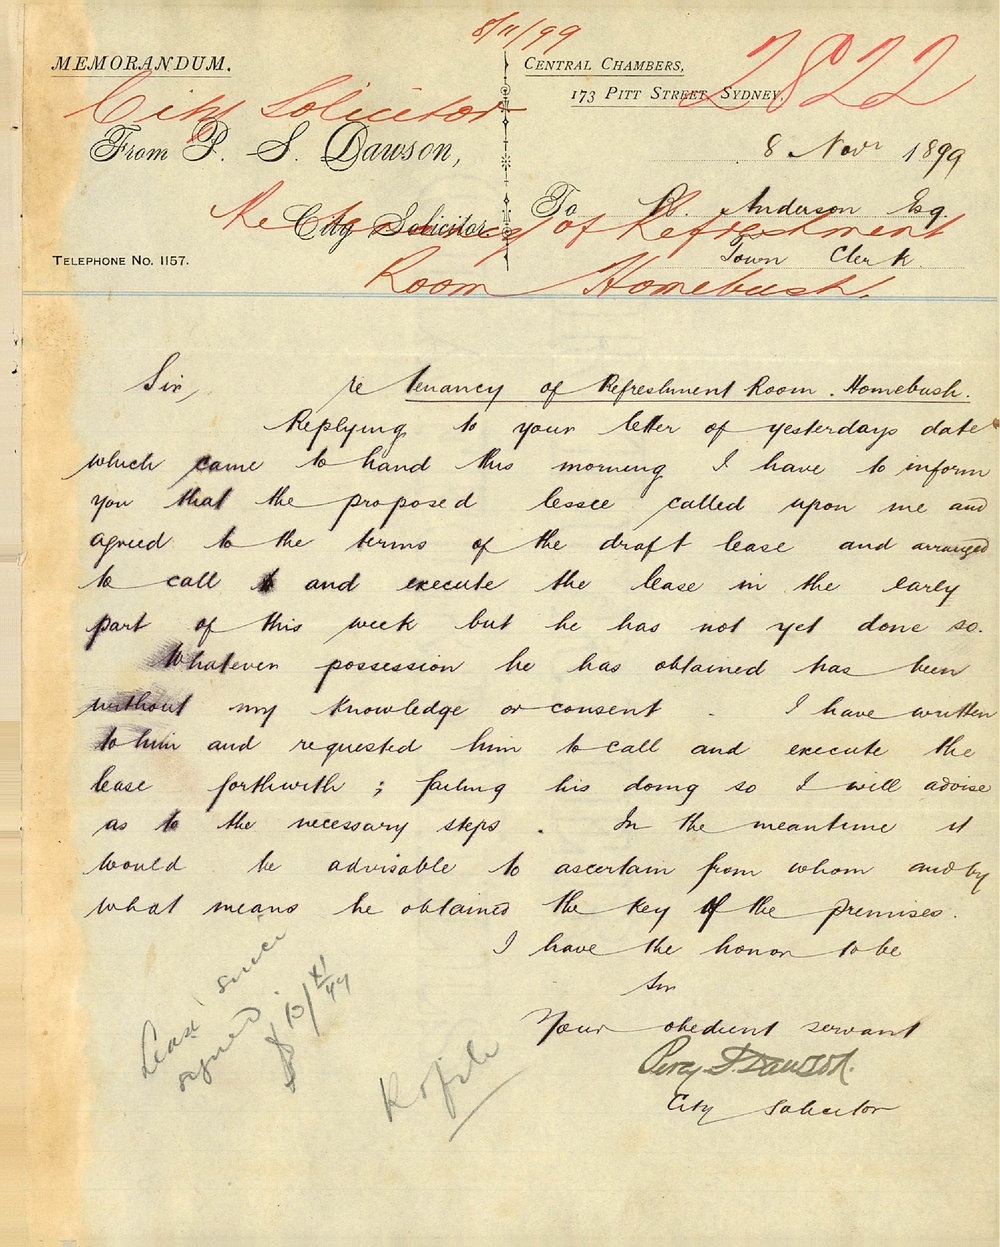 8/11/99
MEMORANDUM.
CENTRAL CHAMBERS,
173 PITT STREET, SYDNEY,
2822
City Solicitor
From P. S. Dawson,
8 Novr 1899
City Solicitor.
To R. Anderson Esq.
Town Clerk
Re tenancy of Refreshment
Room Homebush.
TELEPHONE No. 1157.
Sir, re tenancy of Refreshment Room. Homebush.
Replying to your letter of yesterdays date
which came to hand this morning I have to inform
you that the proposed lessee called upon me and
agreed to the terms of the draft lease and arranged
to call and execute the lease in the early
part of this week but he has not yet done so.
Whatever possession he has obtained has been
without my knowledge or consent. I have written
to him and requested him to call and execute the
lease forthwith; failing his doing so I will advise
as to the necessary steps. In the meantime it
would be advisable to ascertain from whom and by
what means he obtained the key of the premises.
I have the honor to be
Sir
Your obedient servant
Percy S. Dawson.
City Solicitor
Lease since
signed